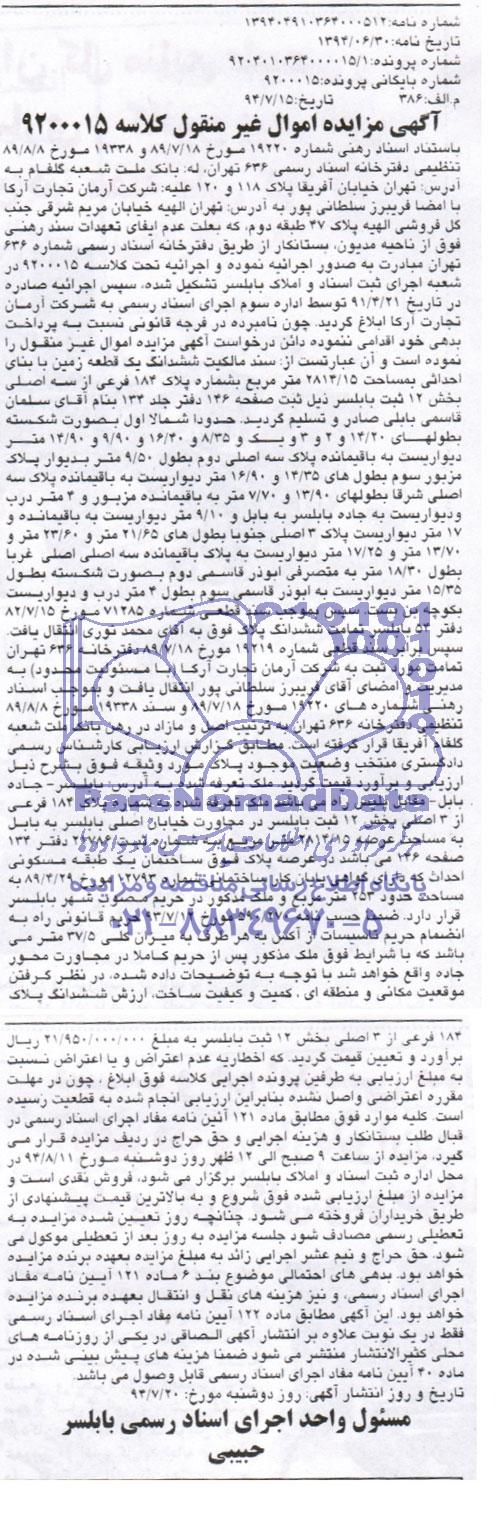 شماره نامه:۱۳۹۴۰۴۹۱۰۳۶۴۰۰۰۵۱۲
تاریخ نامه:۱۳۹۴/۰۶/۳۰
شماره پرونده:۹۲۰۴۰۱۰۳۶۴۰۰۰۰۱۵/۱
شماره بایگانی پرونده:۹۲۰۰۰۱۵
م.الف:۳۸۶ تاریخ:۹۴/۷/۱۵
آگهی مزایده اموال غیر منقول کلاسه ۹۲۰۰۰۱۵
باستناد اسناد رهنی شماره ۱۹۲۲۰ مورخ ۸۹/۷/۱۸ و ۱۹۳۳۸ مورخ ۸۹/۸/۸
تنظیمی دفترخانه اسناد رسمی ۶۳۶ تهران، له: بانک ملت شعبه گلفام به
آدرس: تهران خیابان آفریقا پلاک ۱۱۸ و ۱۲۰ علیه: شرکت آرمان تجارت آرکا
با امضا فریبرز سلطانی پور به آدرس: تهران الهیه خیابان مریم شرقی جنب
گل فروشی الهیه پلاک ۴۷ طبقه دوم، که بعلت عدم ایفای تعهدات سند رهنی
فوق از ناحیه مدیون، بستانکار از طریق دفترخانه اسناد رسمی شماره ۶۳۶
تهران مبادرت به صدور اجرائیه نموده و اجرائیه تحت کلاسه ۹۲۰۰۰۱۵ در
شعبه اجرای ثبت اسناد و املاک بابلسر تشکیل شده، سپس اجرائیه صادره
در تاریخ ۹۱/۴/۲۱ توسط اداره سوم اجرای اسناد رسمی به شرکت آرمان
تجارت آرکا ابلاغ گردید. چون نامبرده در فرجه قانونی نسبت به پرداخت
بدهی خود اقدامی ننموده دائن درخواست آگهی مزایده اموال غیر منقول را
نموده است و آن عبارتست از: سند مالکیت ششدانگ یک قطعه زمین با بنای
احداثی بمساحت ۲۸۱۴/۱۵ متر مربع بشماره پلاک ۱۸۴ فرعی از سه اصلی
بخش ۱۲ ثبت بابلسر ذیل ثبت صفحه ۱۴۶ دفتر جلد ۱۳۴ بنام آقای سلمان
قاسمی بابلی صادر و تسلیم گردید. حدودا شمالا اول بصورت شکسته
بطولهای ۱۴/۲۰ و ۲ و ۳ و یک و ۸/۳۵ و ۱۶/۴۰ و ۹/۹۰ و ۱۴/۹۰ متر
دیواریست به باقیمانده پلاک سه اصلی دوم بطول ۹/۵۰ متر بدیوار پلاک
مزبور سوم بطول های ۱۴/۳۵ و ۱۶/۹۰ متر دیواریست به باقیمانده پلاک سه
اصلی شرقا بطولهای ۱۳/۹۰ و ۷/۷۰ متر به باقیمانده مزبور و ۴ متر درب
ودیواریست به جاده بابلسر به بابل و ۹/۱۰ متر دیواریست به باقیمانده و
۱۷ متر دیواریست پلاک ۳ اصلی جنوبا بطول های ۲۱/۶۵ متر و ۲۳/۶۰ متر و
۱۳/۷۰ متر و ۱۷/۲۵ متر دیواریست به پلاک باقیمانده سه اصلی اصلی غربا
بطول ۱۸/۳۰ متر به متصرفی ابوذر قاسمی دوم بصورت شکسته بطول
۱۵/۳۵ متر دیواریست به ابوذر قاسمی سوم بطول ۴ متر درب و دیواریست
بکوچه بن بست، سپس بموجب سند قطعی شماره ۷۱۲۸۵ مورخ ۸۲/۷/۱۵
دفتر ۵۲ بابلسر تمامت ششدانگ پلاک فوق به آقای محمد نوری انتقال یافت.
سپس برابر سند قطعی شماره ۱۹۲۱۹ مورخ ۸۹/۷/۱۸ دفترخانه ۶۳۶ تهران
تمامت مورد ثبت به شرکت آرمان تجارت آرکا (با مسئولیت محدود) به
مدیریت و امضای آقای فریبرز سلطانی پور انتقال یافت و بموجب اسناد
رهنی شماره های ۱۹۲۲۰ مورخ ۸۹/۷/۱۸ و سند ۱۹۳۳۸ مورخ ۸۹/۸/۸
تنظیمی دفترخانه ۶۳۶ تهران به ترتیب اصل و مازاد در رهن بانک ملت شعبه
گلفام آفریقا قرار گرفته است. مطابق گزارش ارزیابی کارشناس رسمی
دادگستری منتخب وضعیت موجود پلاک مورد وثیقه فوق بشرح ذیل
ارزیابی و برآورد قیمت گردید. ملک تعرفه شده به آدرس: بابلسر- جاده
بابل- مقابل پلیس راه می باشد ملک تعرفه شده به شماره پلاک ۱۸۴ فرعی
از ۳ اصلی بخش ۱۲ ثبت بابلسر در مجاورت خیابان اصلی بابلسر به بابل
به مساحت عرصه ۲۸۱۴/۱۵ متر مربع به شماره ثبت دفتر ۱۳۴
صفحه ۱۴۶ می باشد در عرصه پلاک فوق ساختمان یک طبقه مسکونی
احداث که دارای گواهی پایان کار ساختمانی شماره ۱۲۷۹۳ مورخ ۸۹/۴/۲۹ به
مساحت حدود ۲۵۳ متر مربع و ملک مذکور در حریم مصوب شهر بابلسر
قرار دارد. ضمنا حسب نامه مورخ ۹۳/۷/۱۲ حریم قانونی راه به
انضمام حریم تاسیسات از آکس به هر طرف به میزان کلی ۳۷/۵ متر می
باشد که با شرایط فوق ملک مذکور پس از حریم کاملا در مجاورت محور
جاده واقع خواهد شد با توجه به توضیحات داده شده، در نظر گرفتن
موقعیت مکانی و منطقه ای ، کمیت و کیفیت ساخت، ارزش ششدانگ پلاک
۱۸۴ فرعی از ۳ اصلی بخش ۱۲ ثبت بابلسر به مبلغ ۲۱/۹۵۰/۰۰۰/۰۰۰ ریال
برآورد و تعیین قیمت گردید. که اخطاریه عدم اعتراض و یا اعتراض نسبت
به مبلغ ارزیابی به طرفین پرونده اجرایی کلاسه فوق ابلاغ ، چون در مهلت
مقرره اعتراضی واصل نشده بنابراین ارزیابی انجام شده به قطعیت رسیده
است. کلیه موارد فوق مطابق ماده ۱۲۱ آئین نامه مفاد اجرای اسناد رسمی در
قبال طلب بستانکار و هزینه اجرایی و حق حراج در ردیف مزایده قرار می
گیرد، مزایده از ساعت ۹ صبح الی ۱۲ ظهر روز دوشنبه مورخ ۹۴/۸/۱۱ در
محل اداره ثبت اسناد و املاک بابلسر برگزار می شود، فروش نقدی است و
مزایده از مبلغ ارزیابی شده فوق شروع و به بالاترین قیمت پیشنهادی از
طریق خریداران فروخته می شود. چنانچه روز تعیین شده مزایده به
تعطیلی رسمی مصادف شود جلسه مزایده به روز بعد از تعطیلی موکول می
شود. حق حراج و نیم عشر اجرایی زائد به مبلغ مزایده بعهده برنده مزایده
خواهد بود. بدهی های احتمالی موضوع بند ۶ ماده ۱۲۱ آیین نامه مفاد
اجرای اسناد رسمی، و نیز هزینه های نقل و انتقال بعهده برنده مزایده
خواهد بود. این آگهی مطابق ماده ۱۲۲ آیین نامه مفاد اجرای اسناد رسمی
فقط در یک نوبت علاوه بر انتشار آگهی الصاقی در یکی از روزنامه های
محلی کثیرالانتشار منتشر می شود ضمنا هزینه های پیش بینی شده در
ماده ۴۰ آیین نامه مفاد اجرای اسناد رسمی قابل وصول می باشد.
تاریخ و روز انتشار آگهی: روز دوشنبه مورخ: ۹۴/۷/۲۰
مسئول واحد اجرای اسناد رسمی بابلسر
حبیبی
پایگاه اطلاع رسانی مناقصه و مزایده
۰۲۱-۸۸۳۴۹۶۷۰-۵